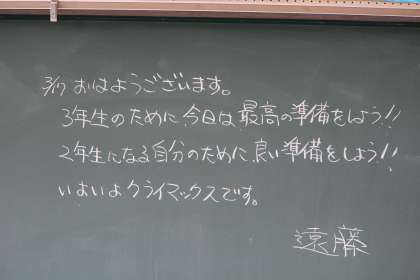 3/17 おはようございます。
3年生のために今日は最高の準備をしよう!!
2年生になる自分のために良い準備をしよう!!
いよいよクライマックスです。
遠藤